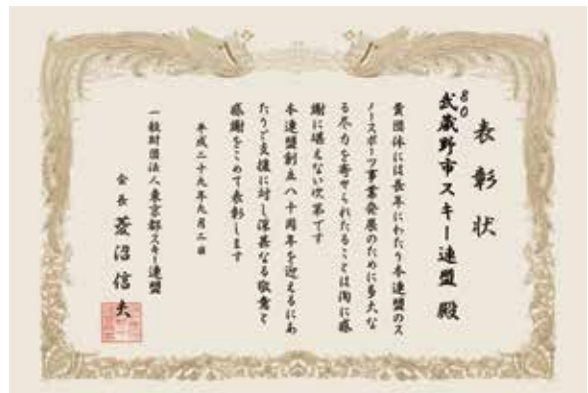 表彰状
80
武蔵野市スキー連盟 殿
貴団体には長年にわたり本連盟のス
ノースポーツ事業発展のために多大な
る尽力を寄せられたることは洵に感
謝に堪えない次第です
本連盟創立八十周年を迎えるにあ
たりご支援に対し深甚なる敬意と
感謝をこめて表彰します
平成二十九年九月二日
一般財団法人東京都スキー連盟
会長 菱沼信夫